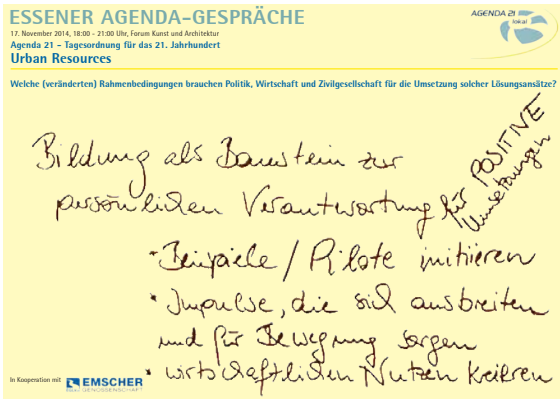 ESSENER AGENDA-GESPRÄCHE
AGENDA 21
lokal
17. November 2014, 18:00 - 21:00 Uhr, Forum Kunst und Architektur
Agenda 21 - Tagesordnung für das 21. Jahrhundert
Urban Resources
Welche (veränderten) Rahmenbedingungen brauchen Politik, Wirtschaft und Zivilgesellschaft für die Umsetzung solcher Lösungsansätze?
Bildung als Baustein zur
persönlichen Verantwortung für POSITIVE
Umsetzungen
• Beispiele / Pilote initiieren
• Impulse, die sich ausbreiten
und für Bewegung sorgen
• wirtschaftlichen Nutzen
In Kooperation mit EMSCHER
GENOSSENSCHAFT